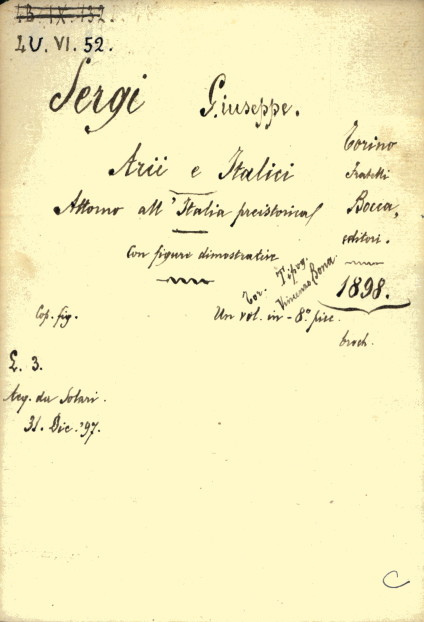 4B. IX. 132.
4U. VI. 52.
Sergi Giuseppe.
Arii e Italici
Attorno all'Italia preistorica
Con figure dimostrative
Torino
Fratelli
Bocca,
editori.
1898.
Tor. Tipog.
Vincenzo Bona
Cop. fig.
Un vol. in-8° picc.
broch.
L. 3.
Acq. da Solari.
31. Dic. '97.
C